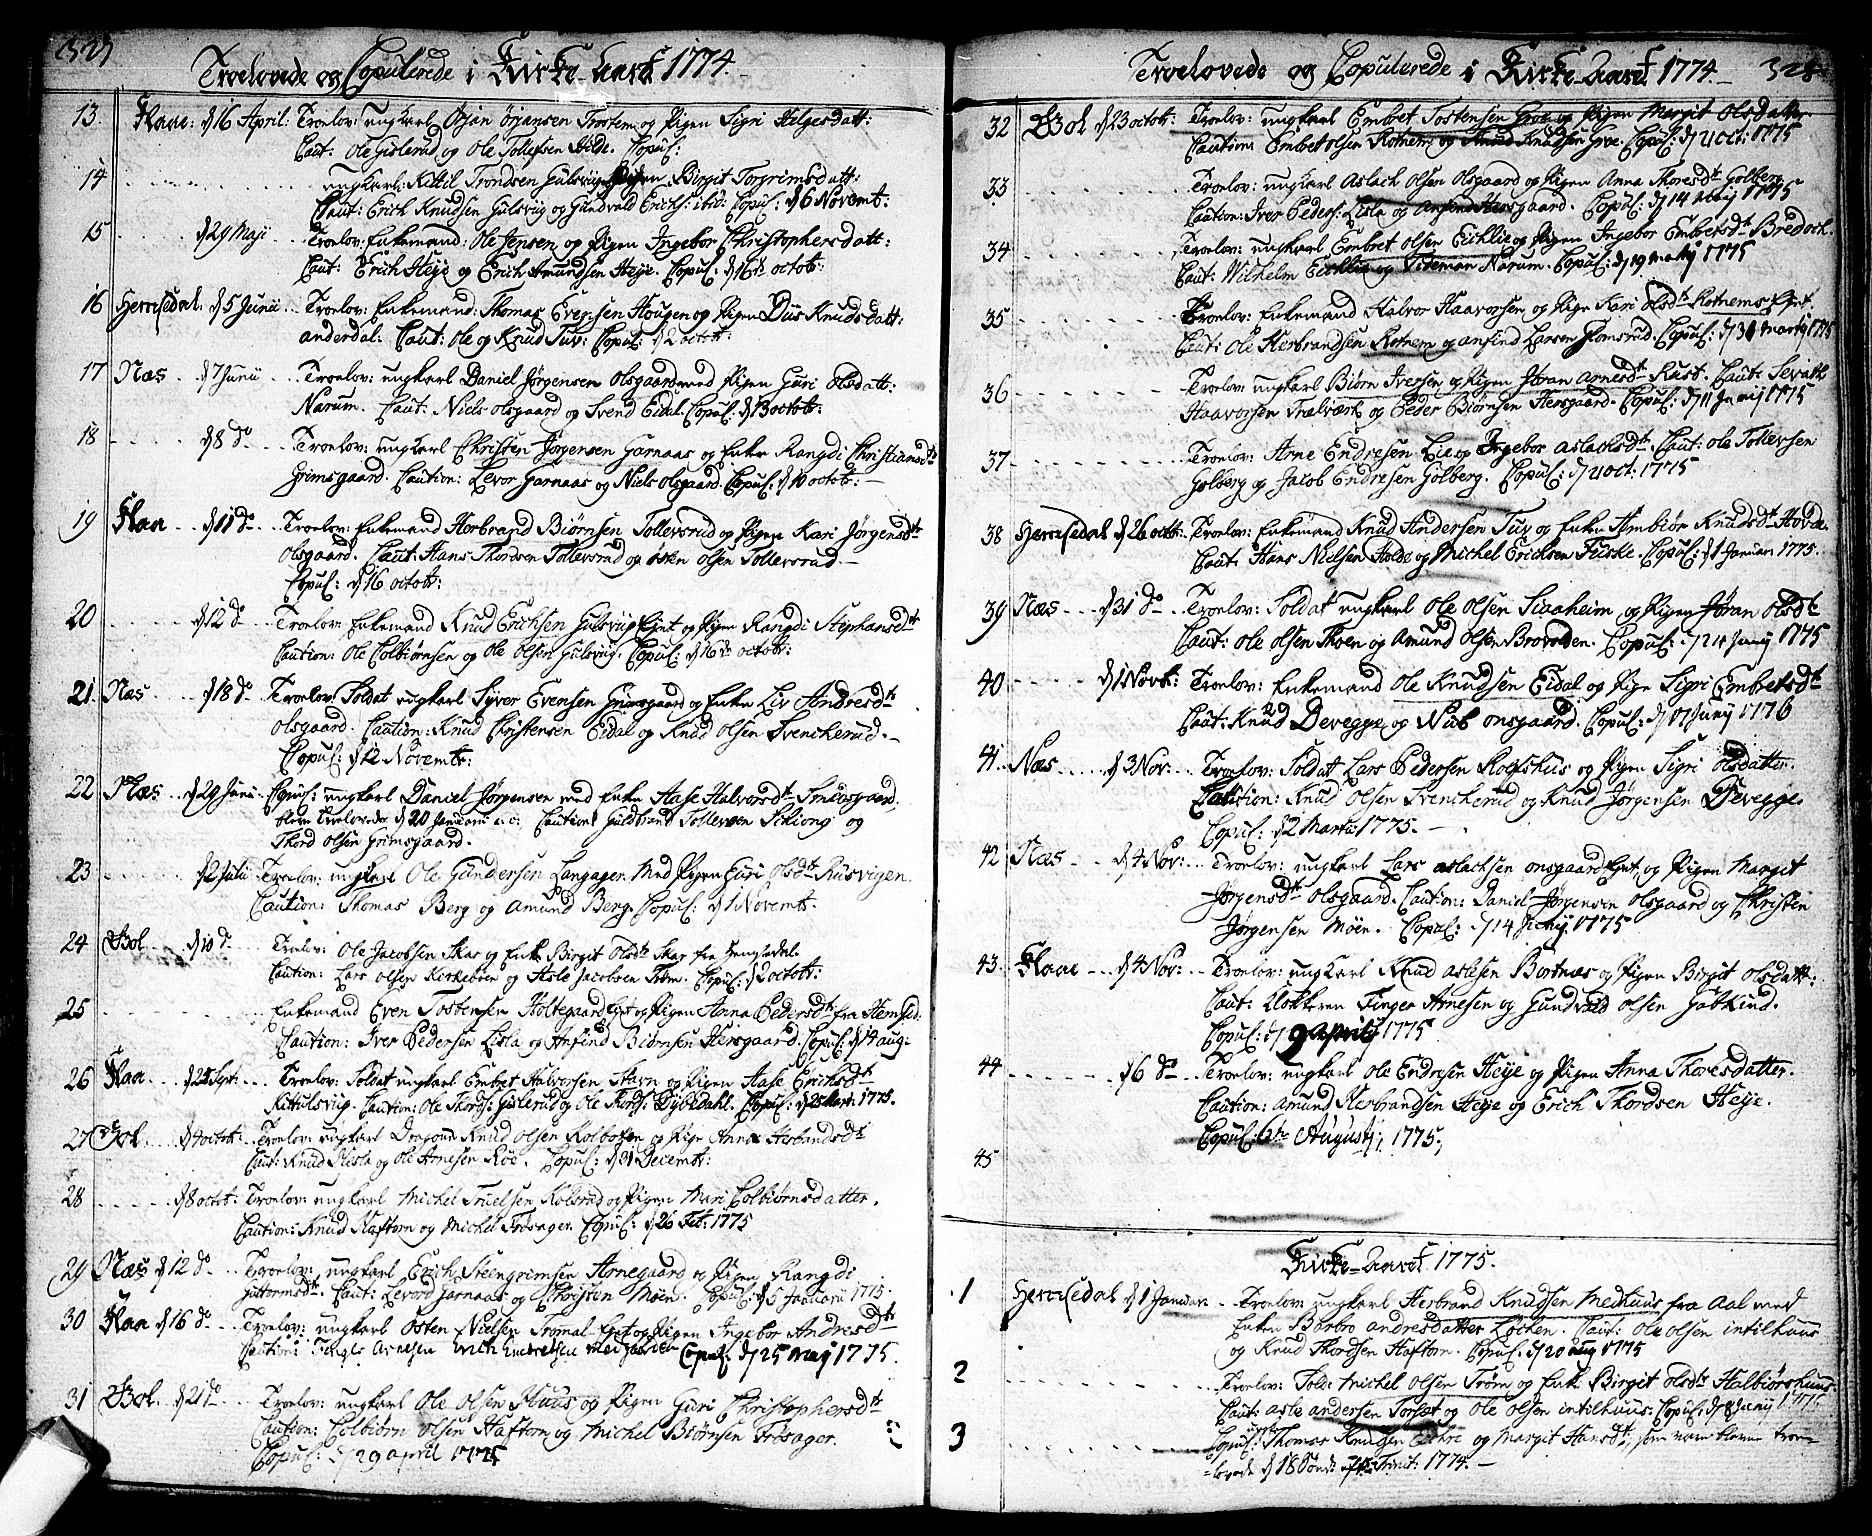 327
Troelovede og Copulerede i Kirke-Aaret 1774.
13. Flaae: d 16 April: Troelov: ungkarl Ørjan Ørjansen Trostem og Pigen Sigri Helgesdatt:
Caut: Ole Gislerud og Ole Tollefsen Hilde. Copul:
14 ungkarl: Kittil Trondsen Gulsviig Pigen Birgit Torgrimsdatt:
Caut: Erich Knudsen Gulsviig og Gundvald Erichs: ibid: Copul: d 6 Novembr:
15 d 29 Maji Troelov: Enkemand: Ole Jensen og Pigen Ingebor Christophersdatt:
Caut: Erich Heye og Erich Amundsen Heye. Copul: d 16 octob:
16 Hemsedal. d 5 Junii Troelov: Enkemand: Thomas Hougen og Pigen Knudsdatt:
anderdal: Caut: Ole og Knud Tuv: Copul: d 2 octob:
17 Næs d 7 Junii Troelov: ungkarl Daniel Jørgensen Olsgaard med Pigen Guri Olsdatt:
Narum. Caut: Niels Olsgaard og Svend Eidal. Copul: d 13 octob:
18 d 8 do Troelov: ungkarl Christen Jørgensen Garnaas og Enke Rangdi Christiansdtr
Grimsgaard. Caution: Levor Garnaas og Niels Olsgaard. Copul: d 10 octob:
19 Flaa d 11 do Troelov: Enkemand Herbrand Biørnsen Tollevsrud og Pigen Kari Jørgensdtr
Olsgaard. Caut: Hans Thordsen Tollevsrud og Osten Olsen Tollevsrud.
Copul: d 16 octob:
20 d 12 do Troelov: Enkemand Knud Erichsen Gulsviig Eget og Pigen Rangdi Stephansdtr
Caution: Ole Colbiørnsen og Ole Olsen Gulsvig. Copul: d 16 octob:
21. Næs d 18 do Troelov: Soldat ungkarl Syver Evensen Grimsgaard og Enke Liv Andresdtr
Olsgaard. Caution: Knud Christensen Eidal og Knud Olsen Svenckerud.
Copul: d 12 Novembr:
22 Næs d 29 Junii Copul: ungkarl Daniel Jørgensen med Enke Aase Halvorsdtr
bleve Troelovede d 20 Januarii a: c: Caution: Guldbrand Tollevsen Skiong og
Thord Olsen Grimsgaard.
23 d 2 Julii Troelov: ungkarl Ole Gundersen Langagen Med Pigen Guri Olsdtr Rusvigen.
Caution: Thomas Berg og Amund Berg. Copul: d 1 Novembr.
24 Gol d 10 do Troelov: Ole Jacobsen Skar og Enke Birgit Olsdtr Skar fra
Caution: Lars Olsen Kirkebøen og Asle Jacobsen Trøm. Copul: d 2 octob:
25 Enkemand Even Tostensen Holtegaard Eget og Pigen Anna Pedersdtr fra Hemsed:
Caution: Iver Pedersen Lisla og Anfind Biørnsen Hersgaard. Copul: d 14 aug:
26 Flaa d 24 Sept: Troelov: Soldat ungkarl Embret Halvorsen Stavn og Pigen Aase Erichsdtr
Kittulsviig. Caution: Ole Thords: Gislerud og Ole Thords: Dybedahl. Copul: d 25 Mart: 1775.
27 Gol d 4 octob: Troelov: ungkarl Dragoun Knud Olsen Rolbosen og Pige Anna
Caut: Knud Nesla og Ole Arnesen Røe. Copul: d 31 Decembr:
28 d 8 octob: Troelov: ungkarl Michel Truelsen Kolsrud og Pigen Mari Colbiørnsdatter.
Caution: Knud Haftorn og Michel Trøsager. Copul: d 26 Feb: 1775
29 Næs d 12 do Troelov: ungkarl Erich Steengrimsen Arnegaard og Pigen Rangdi
Guttormsdtr. Caut: Levord Garnaas og Christen Møen. Copul: d 5 Januarii 1775.
30 Flaa d 16 do Troelov: ungkarl Osten Nielsen Trommal Eget og Pigen Ingebor Andresdtr
Caution: Arnesen Copul: d 25 maij 1775.
31 Gol d 21 do Troelov: ungkarl Ole Olsen Huus og Pigen Guri Christophersdtr
Caution: Colbiørn Olsen Haftorn og Michel Biørnsen Trøsager.
Copul: d 29 april 1775
Troelovede og Copulerede i Kirke-Aaret 1774. 328
32 Gol d 23 octob: Troelov: ungkarl Embret Tostensen Groe og Pigen Margit Olsdatter
Caution: Embret Olsen Rotnem og Knudsen Groe. Copul: d oct: 1775
33 Troelov: ungkarl Aslach Olsen Olsgaard og Pigen Anna Thoresdtr Golberg
Caution: Iver Peders: Lisla og Anfind Hersgaard. Copul: d 14 Maij 1775
34 Troelov: ungkarl Embret Olsen Eichlie og Pigen Ingebor Embretsdtr Bredoch.
Caut: Wilhelm Eichlie og Videman Narum. Copul: d 19 1775
35 Troelov: Enkemand Halvor Haavorsen og Pige Kari Olsdtr Rotnems Eget
Caut: Ole Herbrandsen Rotnem og Anfind Larsen Glomsrud. Copul: d 30 martij 1775
36 Troelov: ungkarl Biørn Iversen og Pigen Jøran Arnesdtr Rust. Caut: Sevath
Haavorsen Trælvæk og Peder Biørnsen Hersgaard. Copul: d 11 Junij 1775
37 Troelov: Arne Endresen Lie og Ingebor Aslachsdtr. Caut: Ole Tollevsen
Golberg og Jacob Endresen Golberg. Copul: d oct: 1775
38 Hemsedal d 26 octob: Troelov: Enkemand Knud Andersen Tuv og Enke Ambiør Knudsdtr Hovde.
Caut: Hans Nielsen Holde og Michel Erichsen Fuske. Copul: d 1 Januar: 1775.
39 Næs d 31 do Troelov: Soldat ungkarl Ole Olsen Siaaheim og Pigen Jøran Olsdtr
Caut: Ole Olsen Thoen og Amund Olsen Brovolden. Copul: d 24 Junij 1775
40 d 1 Novb: Troelov: Enkemand Ole Knudsen Eidal og Pige Sigri Embretsdtr
Caut: Knud Devegge og Nub Onsgaard. Copul: d 17 Junij 1776
41. Næs d 3 Nov: Troelov: Soldat Lars Pedersen Roeshus og Pigen Sigri Olsdatter.
Caution: Knud Olsen Svenckerud og Knud Jørgensen Devegge.
Copul: d 2 Martii 1775.
42 Næs d 4 Nov: Troelov: ungkarl Lars Aslachsen Onsgaard Eget, og Pigen Margit
Jørgensdtr Olsgaard. Caution: Daniel Jørgensen Olsgaard og Christen
Jørgensen Møen. Copul: d 14 1775
43 Flaae d 4 Nov: Troelov: ungkarl Knud Aslesen Bortnæs og Pigen Birgit Olsdatt:
Caut: Klokkeren Finger Arnesen og Gundvald Olsen Gudkind.
Copul: d 9 Aprily 1775
44 d 6 do Troelov: ungkarl Ole Endresen Heye og Pigen Anna Thoresdatter.
Caution: Amund Herbrandsen Heye og Erich Thordsen Heye.
Copul: 6te Augustij, 1775;
45
Kirke-Aaret 1775.
1 Hemsedal d 1 Januar: Troelov: ungkarl Herbrand Knudsen Medhuus fra Aal med
Enken Borbro Andresdatter Løchen. Caut: Ole Olsen intilhuus
og Knud Thordsen Haftorn. Copul: d 20 aug 1775
2 Troelov: Sold: Michel Olsen Trøm og Enk: Birgit Olsdtr Halbiørhuus.
Caut: Asle Andersen Torset og Ole Olsen intilhuus: Copul: d 8 Janij 1775
3 Copul: Thomas Knudsen Eichre og Margit Hansdtr, som vare blevne troe-
lovede d 18 Sønd: efter Trinit: 1774.